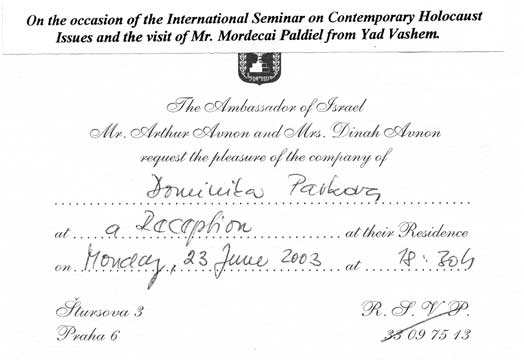 On the occasion of the International Seminar on Contemporary Holocaust
Issues and the visit of Mr. Mordecai Paldiel from Yad Vashem.
The Ambassador of Israel
Mr. Arthur Avnon and Mrs. Dinah Avnon
request the pleasure of the company of
Dominika
at a Reception at their Residence
on Monday, 23 June 2003 at 18.30h
Štursova 3 R. S. V. P.
Praha 6 33 09 75 13